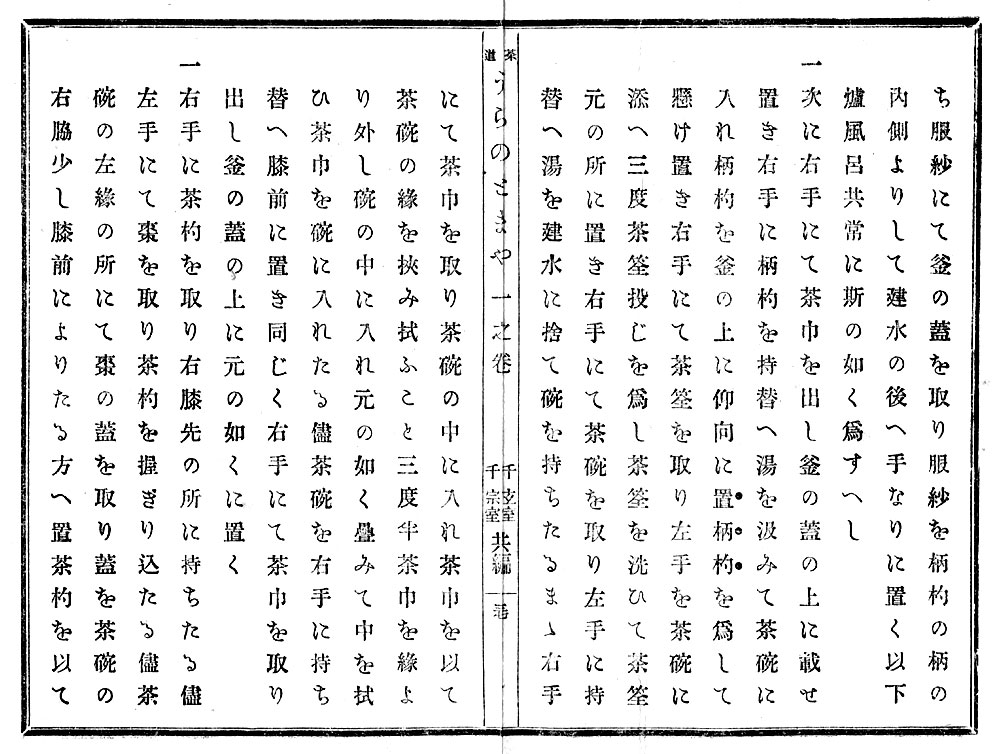 ち服紗にて釜の蓋を取り服紗を柄杓の柄の
内側よりして建水の後へ手なりに置く以下
爐風呂共常に斯の如く爲すへし
一次に右手にて茶巾を出し釜の蓋の上に載せ
置き右手に柄杓を持替へ湯を汲みて茶碗に
入れ柄杓を釜の上に仰向に置柄杓を爲して
懸け置き右手にて茶筌を取り左手を茶碗に
添へ三度茶筌投じを爲し茶筌を洗ひて茶筌
元の所に置き右手にて茶碗を取り左手に持
替へ湯を建水に捨て碗を持ちたるまゝ右手
茶道
うらのとまや 一之卷
千玄室
千宗室
共編
にて茶巾を取り茶碗の中に入れ茶巾を以て
茶碗の緣を挾み拭ふこと三度半茶巾を緣よ
り外し碗の中に入れ元の如く疊みて中を拭
ひ茶巾を碗に入れたる儘茶碗を右手に持ち
替へ膝前に置き同じく右手にて茶巾を取り
出し釜の蓋の上に元の如くに置く
一右手に茶杓を取り右膝先の所に持ちたる儘
左手にて棗を取り茶杓を握ぎり込たる儘茶
碗の左緣の所にて棗の蓋を取り蓋を茶碗の
右脇少し膝前によりたる方へ置茶杓を以て